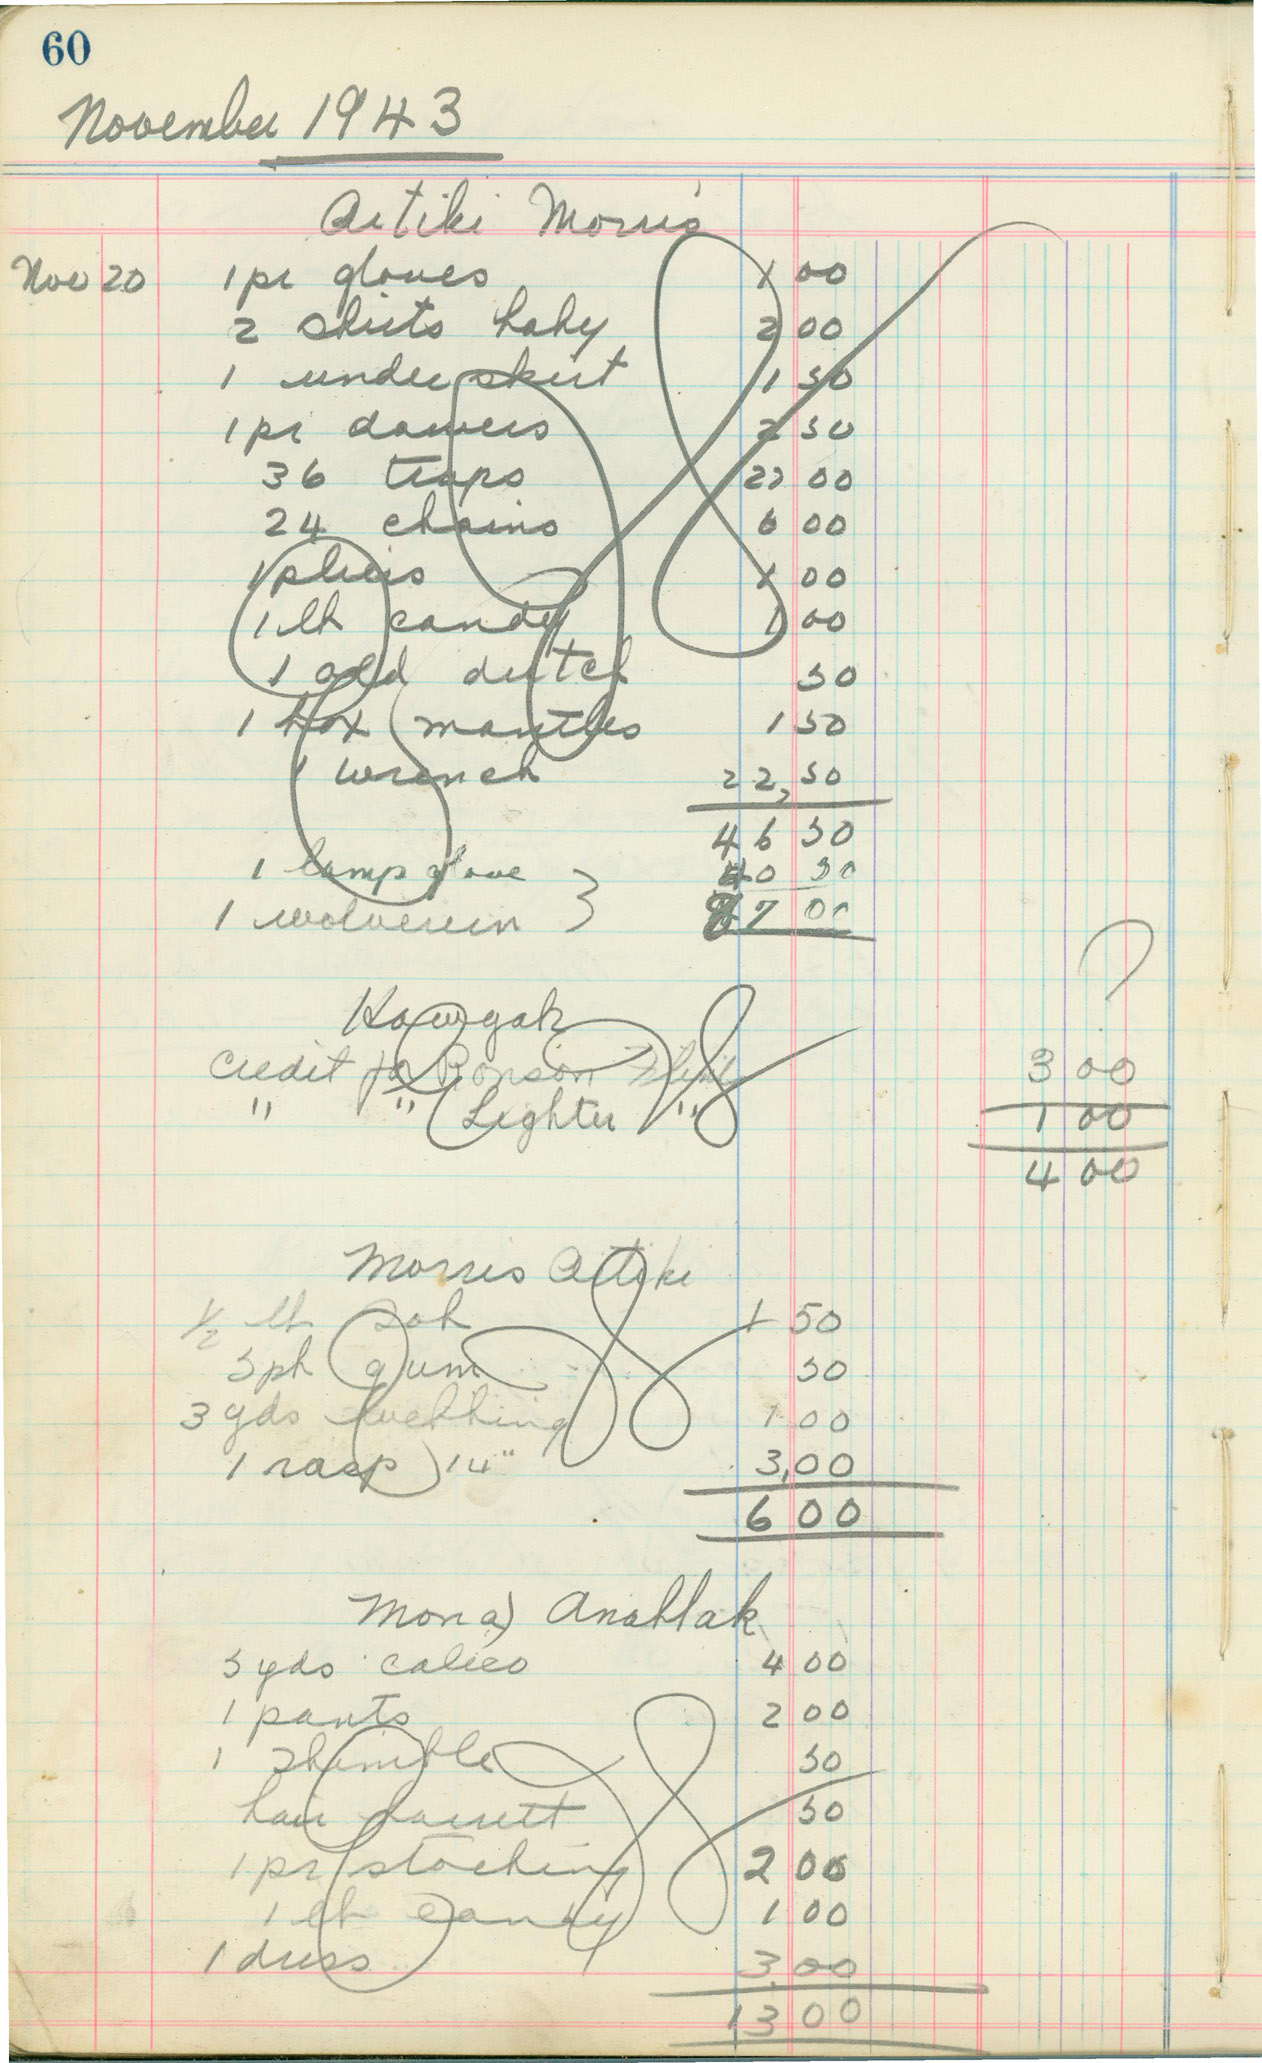 60
November 1943
Artiki Morris
Nov 20 1 pr gloves 1 00
2 shirts baby 2 00
1 underskirt 1 50
1 pr drawers 2 50
36 traps 27 00
24 chains 6 00
1 pliers 1 00
1 lb candy 1 00
1 old dutch 50
1 box mantles 1 50
1 wrench 2 2,50
46 50
1 lamp glove } 40 50
1 wolverein 87 00
Kowgak ?
Credit for Ronson 3 00
" " Lighter " 1 00
4 00
Morris Artiki
1/2 lb 1 50
5 pk gum 50
3 yds webbing 1 00
1 rasp 14" 3,00
6 00
Mona) Anablak
5 yds calico 4 00
1 pants 2 00
1 thimble 50
hair barrett 50
1 pr stocking 2 00
1 lb candy 1 00
1 dress 3.00
13 00